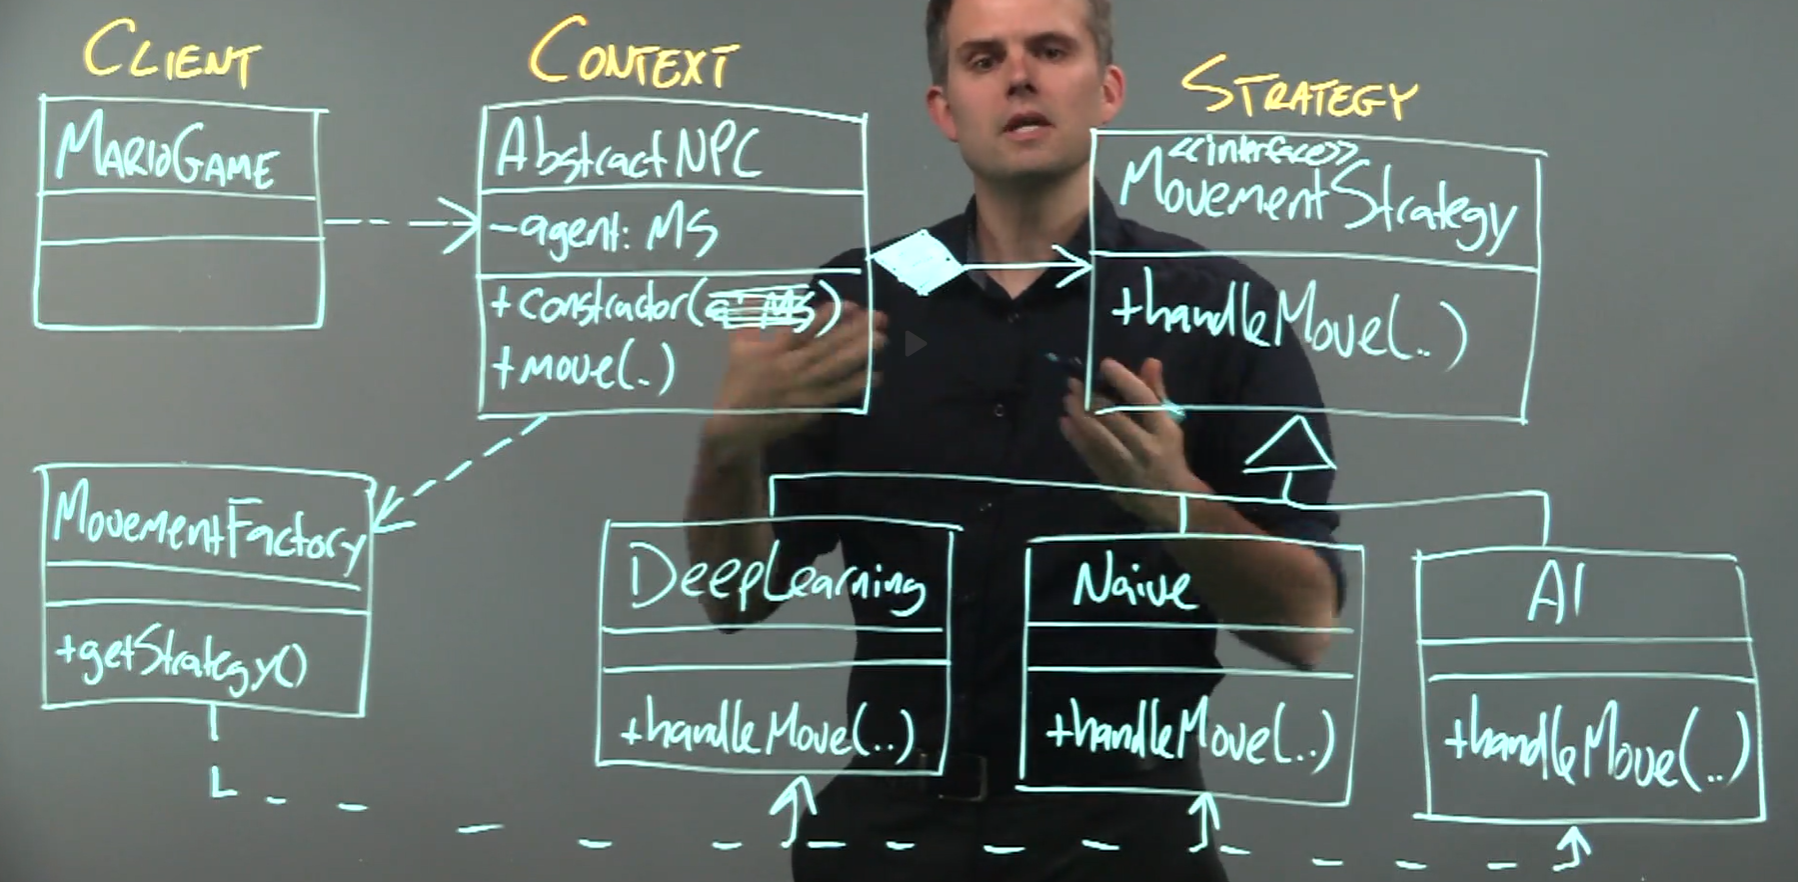 CLIENT
MARIOGAME
CONTEXT
AbstractNPC
-agent: MS
+constructor(a: MS)
+move(..)
STRATEGY
<<interface>>
MovementStrategy
+handleMove(..)
MovementFactory
+getStrategy()
DeepLearning
+handleMove(..)
Naive
+handleMove(..)
AI
+handleMove(..)